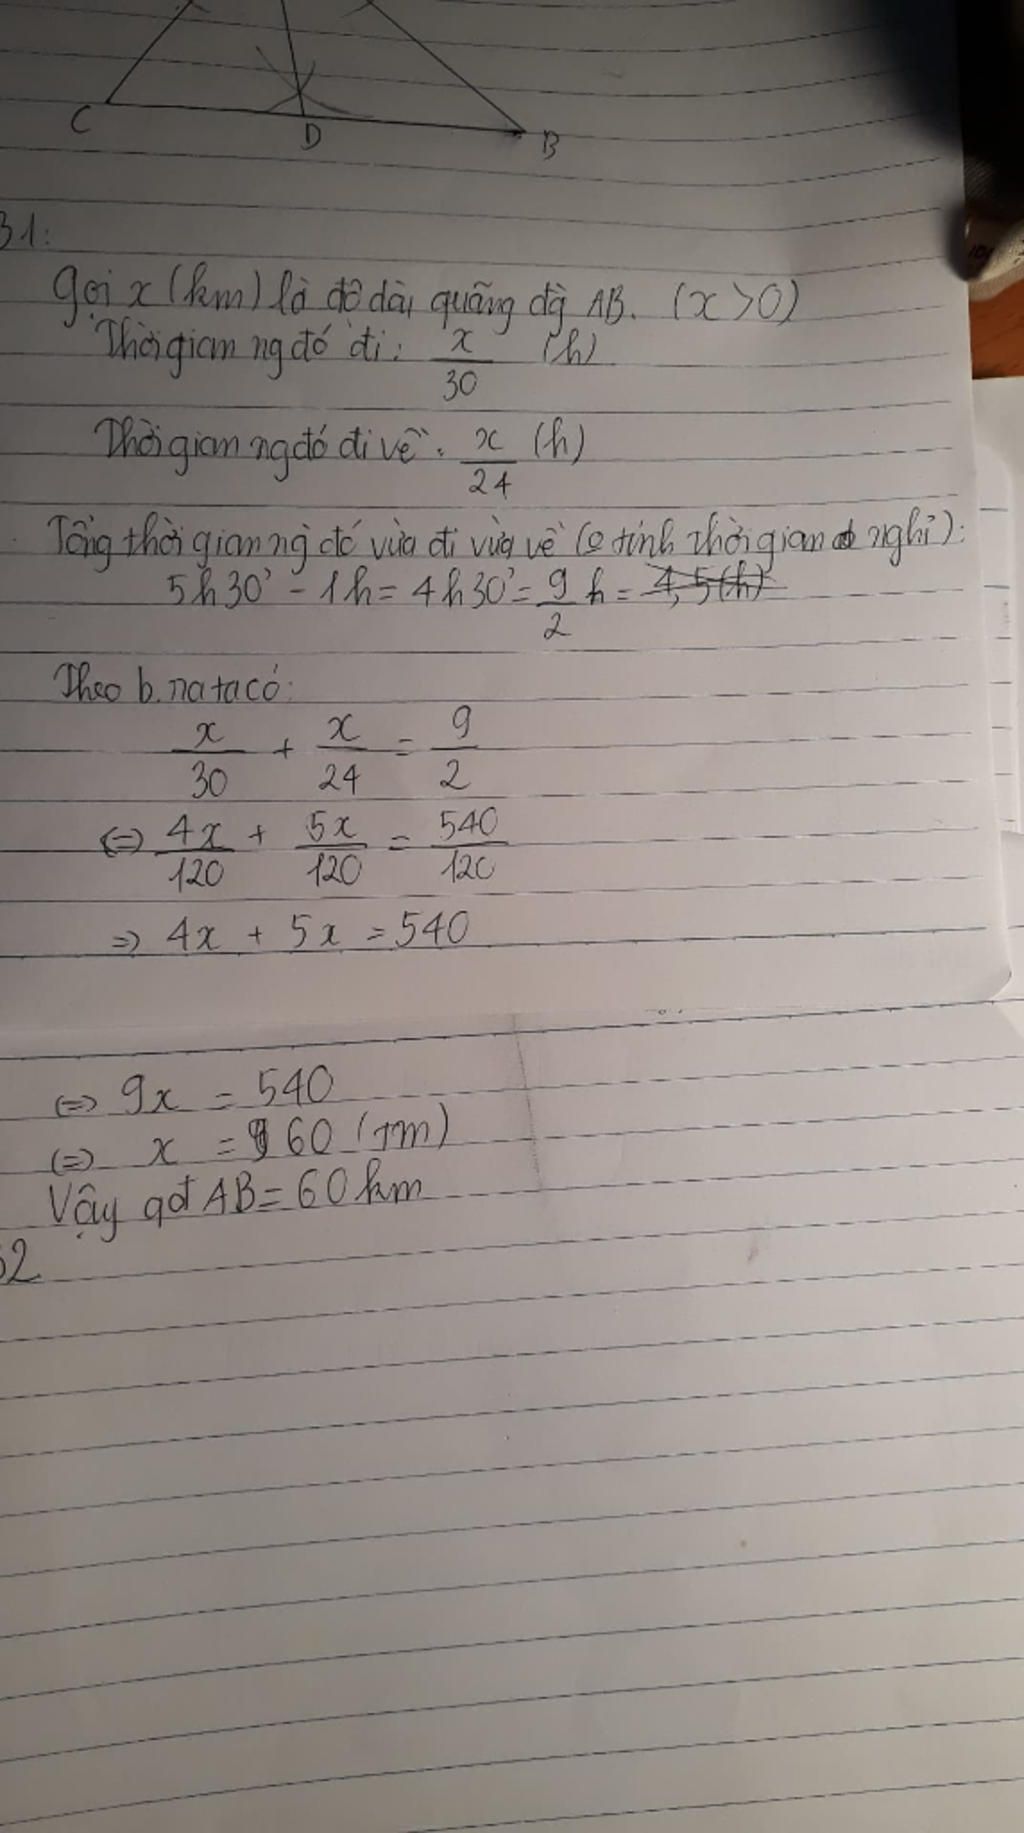 C
D
B
31:
Gọi x (km) là độ dài quãng đg AB. (x > 0)
Thời gian ng đó đi: x/30 (h)
Thời gian ng đó đi về: x/24 (h)
Tổng thời gian ng đó vừa đi vừa về (o tính thời gian nghỉ):
5h30' - 1h = 4h30' = 9/2 h = 4,5(h)
Theo b.ra ta có:
x/30 + x/24 = 9/2
⇔ 4x/120 + 5x/120 = 540/120
⇒ 4x + 5x = 540
⇔ 9x = 540
⇔ x = 60 (TM)
Vậy qđ AB = 60 km
32